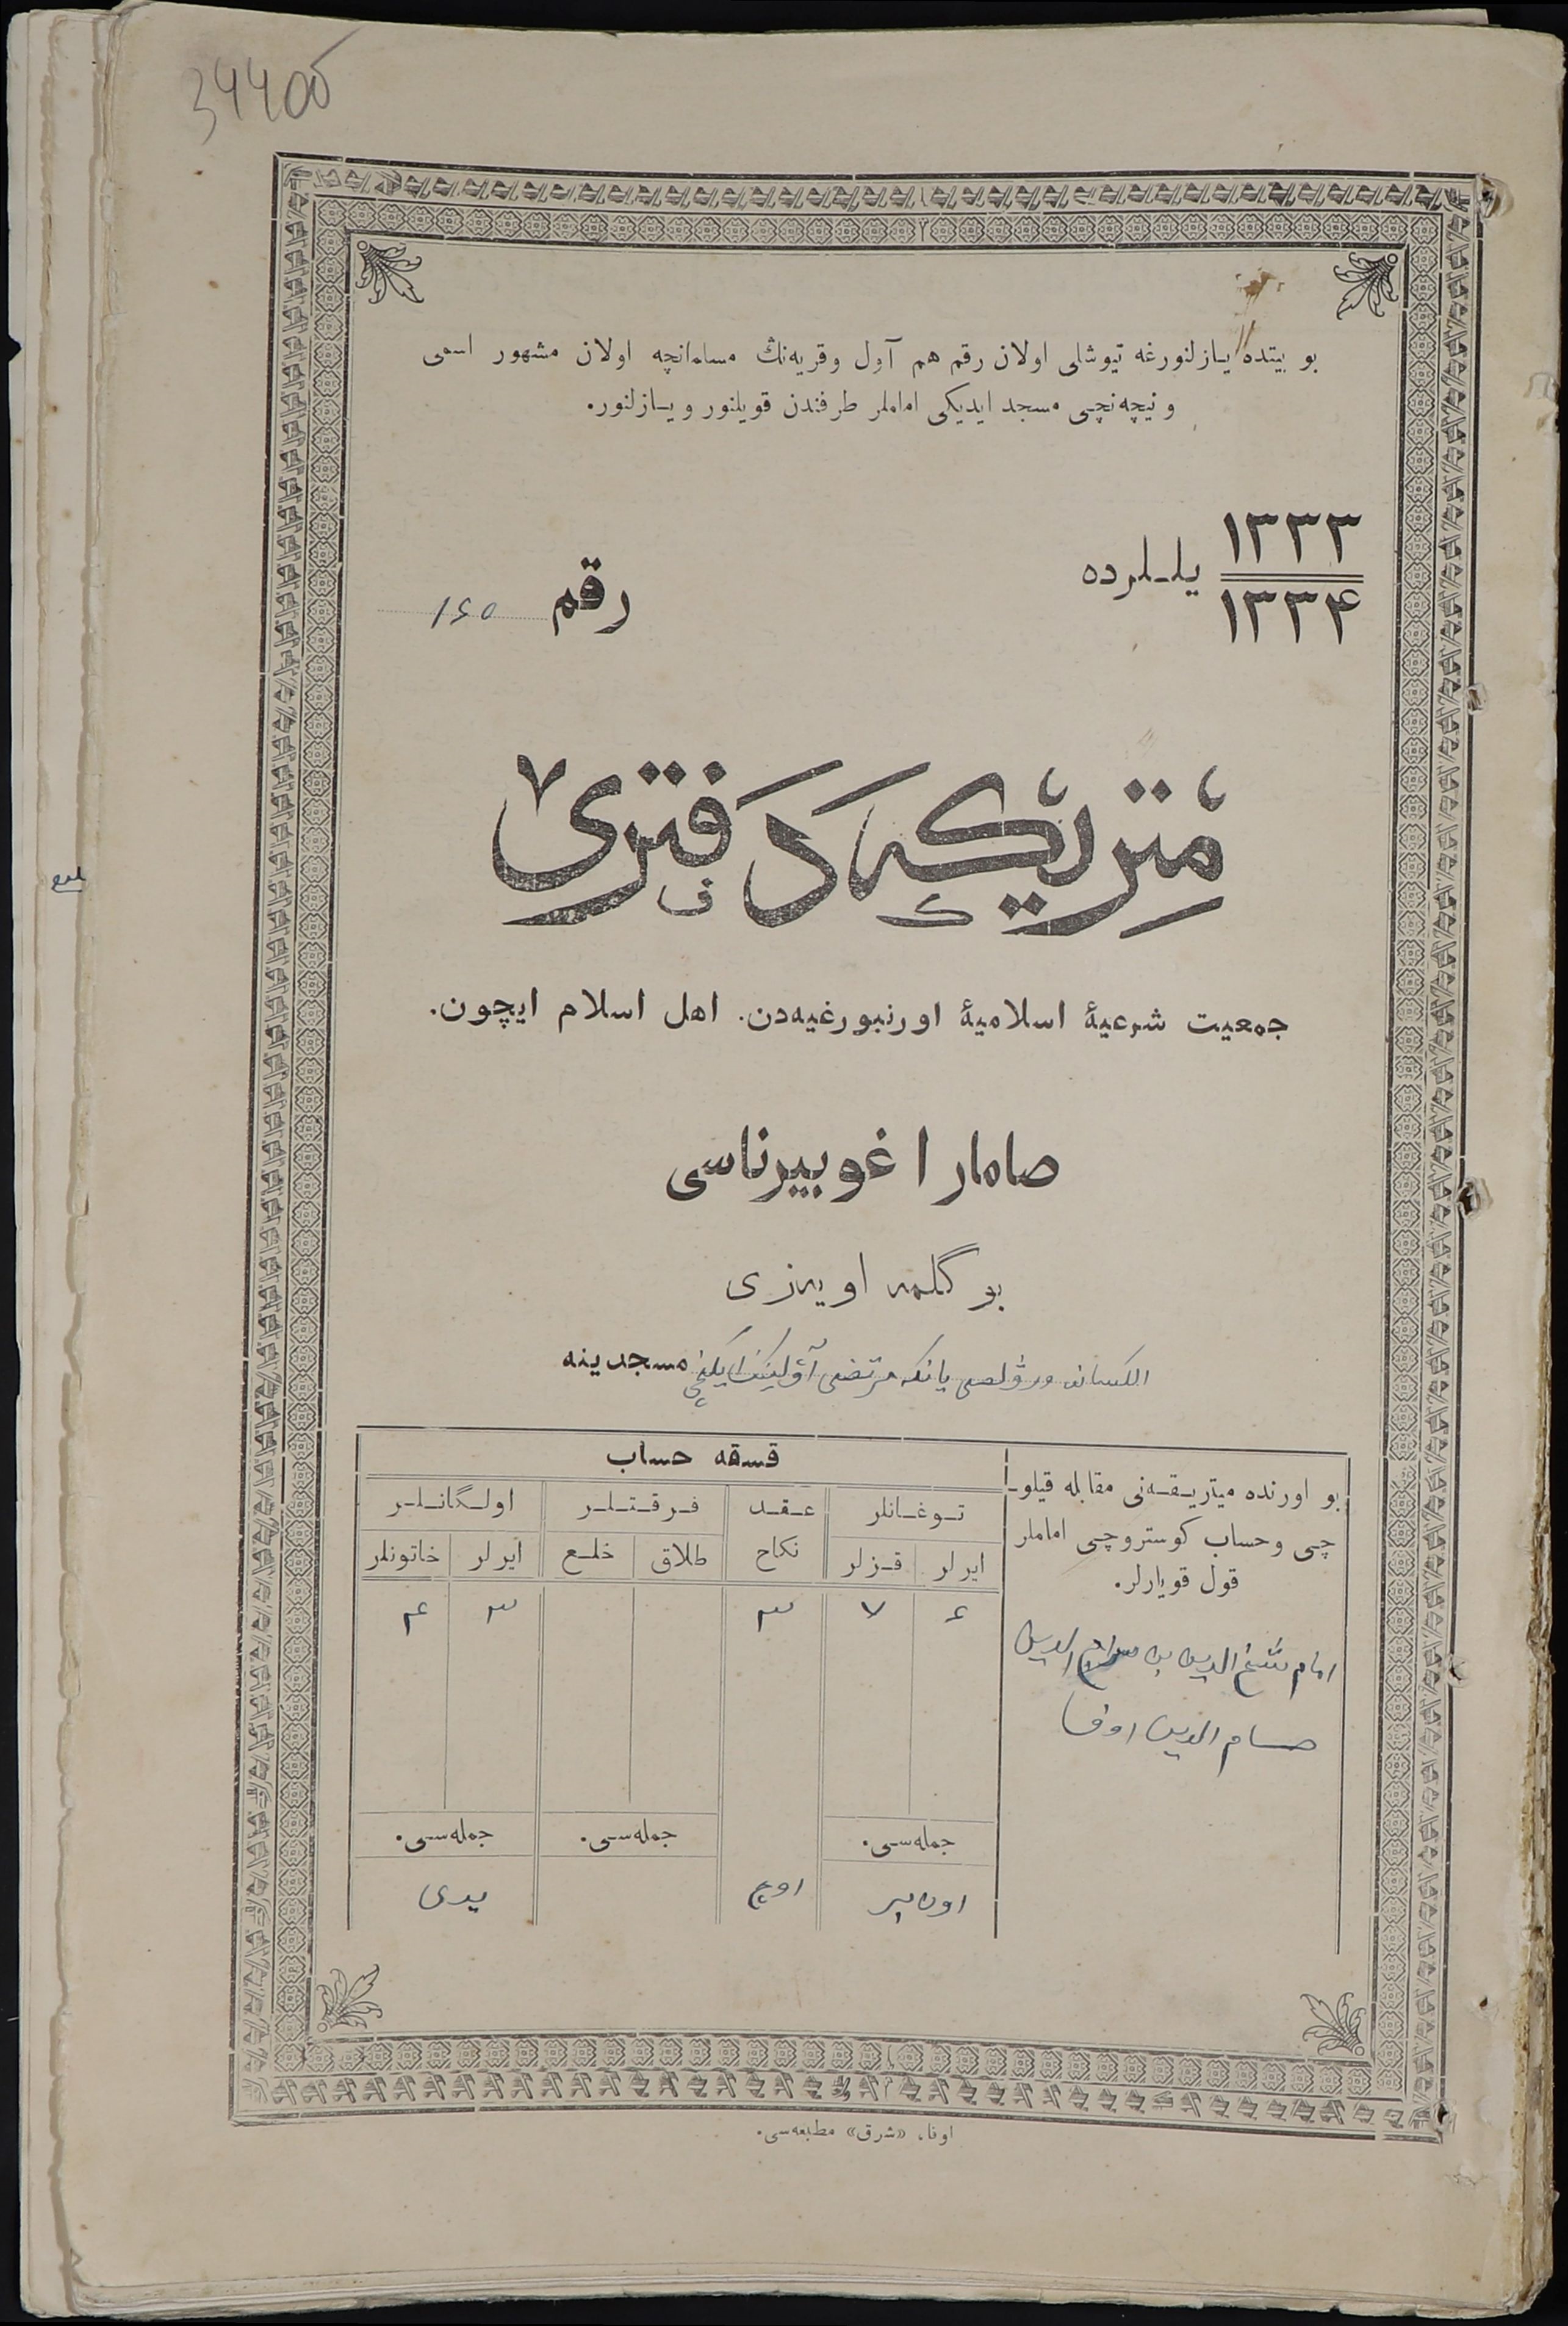 3440об
بو بیتده یازلنورغه تیوشلی اولان رقم هم آول وقریه‌نڭ مسلمانچه اولان مشهور اسمی
ونیچه‌نچی مسجد ایدیکی اماملر طرفندن قویلنور ویازلنور.
۱۳۳۳
۱۳۳۴
یللرده
رقم ۱۶۵
متریکه دفتری
جمعیت شرعیهٔ اسلامیهٔ اورنبورغیه‌دن. اهل اسلام ایچون.
صامارا غوبیرناسی
بوگلمه اویه‌زی
یانکه مرتضی آولینڭ ایکنچی مسجدینه
بو اورنده میتریقه‌نی مقابله قیلو-
چی وحساب کوستروچی اماملر
قول قویارلر.
امام شیخ الدین بن سراج الدین
حسام الدین اوف
قسقه حساب
توغانلر
عقد
فرقتلر
اولگانلر
ایرلر
قزلر
نکاح
طلاق
خلع
ایرلر
خاتونلر
۴
۷
۳
۳
۴
جمله‌سی.
جمله‌سی.
جمله‌سی.
اون بیر
اوچ
یدی
اوفا، «شرق» مطبعه‌سی.